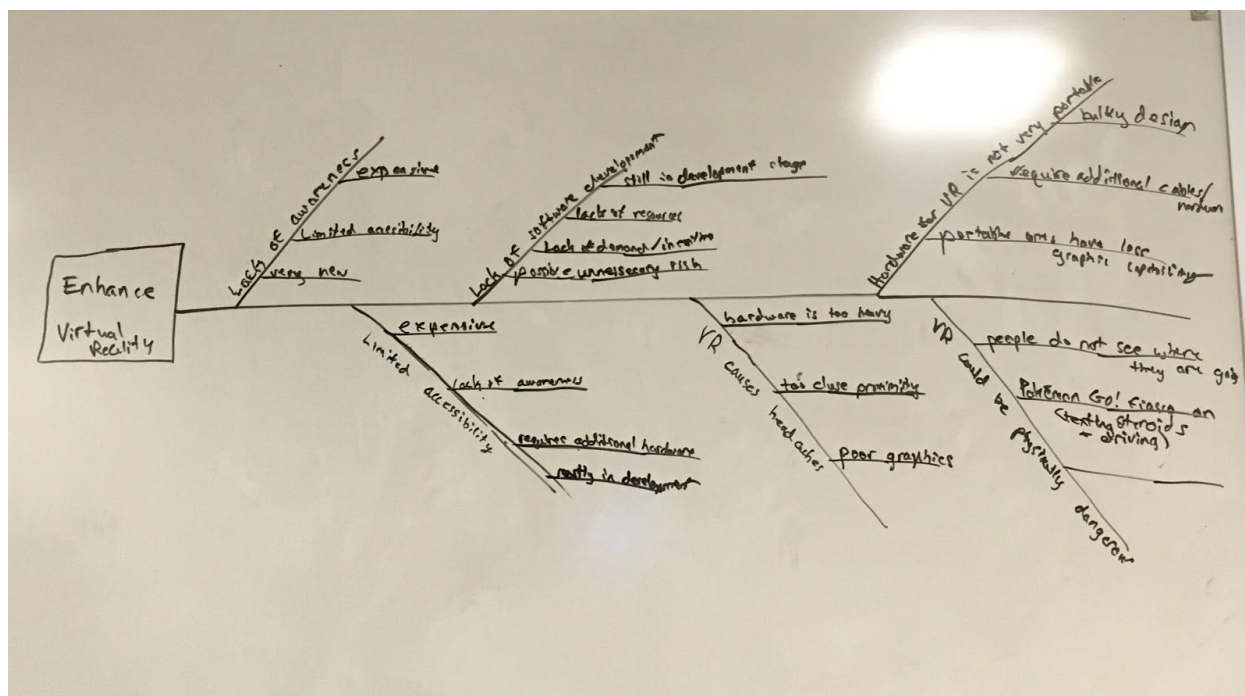 Enhance
Virtual
Reality
Lack of awareness
expensive
Limited accesibility
very new
Lack of software development
still in development stage
lacks of resources
Lack of demand/incentive
possible unnessecary risk
Hardware for VR is not very portable
bulky design
require additional cables/
portable ones have less
graphic capability
Limited accessibility
expensive
lack of awareness
requires additional hardware
mostly in development
VR causes headaches
hardware is too heavy
too close proximity
poor graphics
VR could be physically dangerous
people do not see where
they are going
Pokémon GO! fiasco on
(texting steroids
driving)